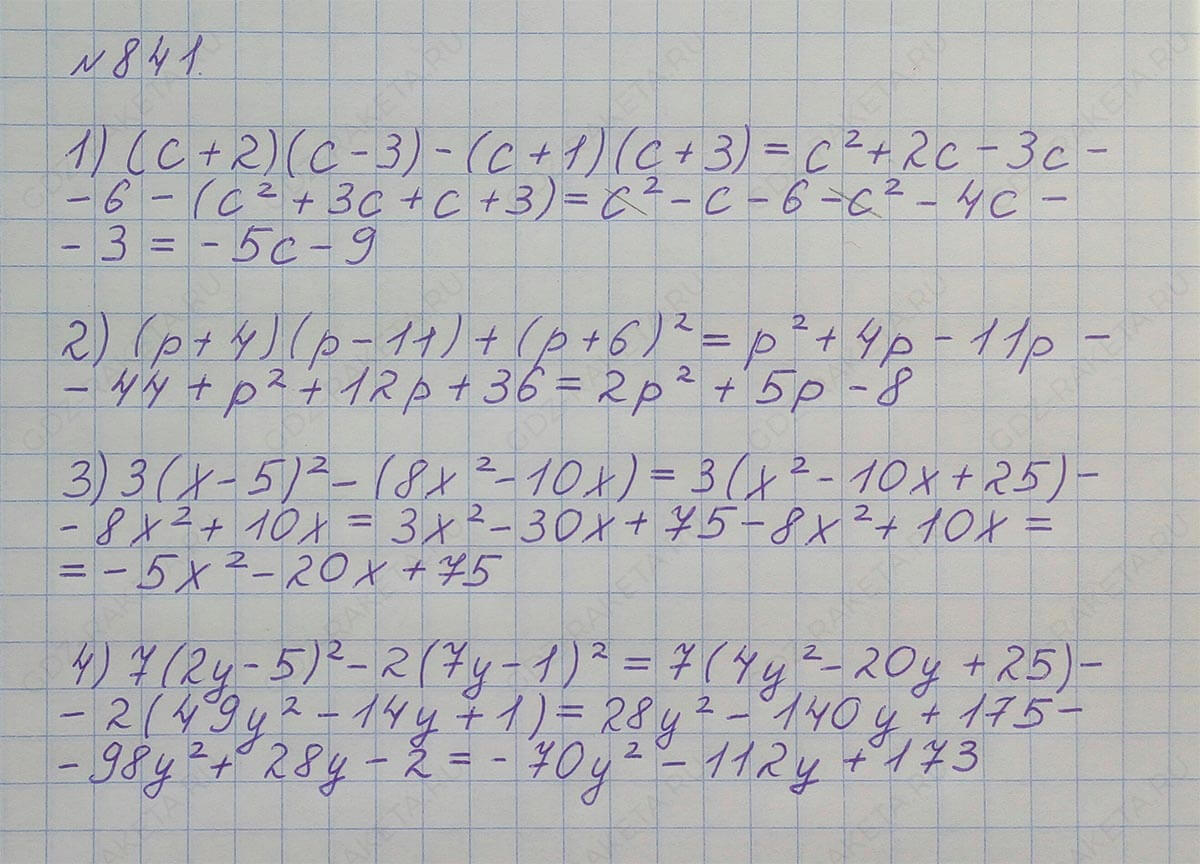 № 841.
1) (c + 2)(c - 3) - (c + 1)(c + 3) = c² + 2c - 3c -
- 6 - (c² + 3c + c + 3) = c² - c - 6 - c² - 4c -
- 3 = - 5c - 9
2) (p + 4)(p - 11) + (p + 6)² = p² + 4p - 11p -
- 44 + p² + 12p + 36 = 2p² + 5p - 8
3) 3(x - 5)² - (8x² - 10x) = 3(x² - 10x + 25) -
- 8x² + 10x = 3x² - 30x + 75 - 8x² + 10x =
= - 5x² - 20x + 75
4) 7(2y - 5)² - 2(7y - 1)² = 7(4y² - 20y + 25) -
- 2(49y² - 14y + 1) = 28y² - 140y + 175 -
- 98y² + 28y - 2 = - 70y² - 112y + 173
GDZ-RAKETA.RU